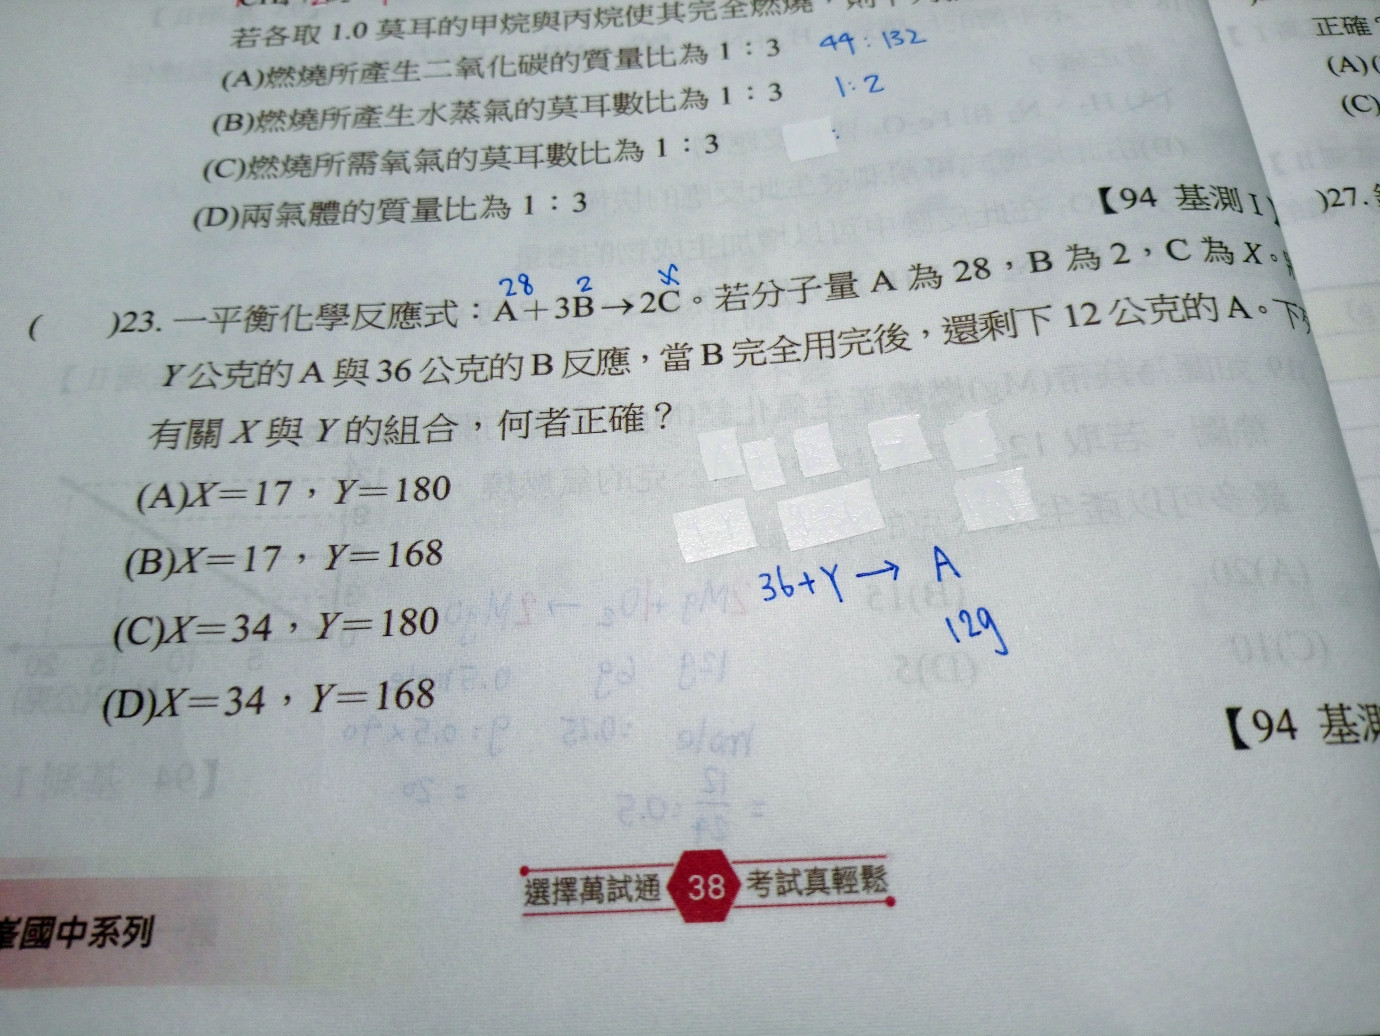 若各取 1.0 莫耳的甲烷與丙烷使其完全燃燒,則下列
(A)燃燒所產生二氧化碳的質量比為 1:3 44:132
(B)燃燒所產生水蒸氣的莫耳數比為 1:3 1:2
(C)燃燒所需氧氣的莫耳數比為 1:3 :
(D)兩氣體的質量比為 1:3
【94 基測 I】
28 2 X
( )23. 一平衡化學反應式:A+3B→2C。若分子量 A 為 28,B 為 2,C 為 X。
Y公克的 A 與 36 公克的 B 反應,當 B 完全用完後,還剩下 12 公克的 A。下列
有關 X 與 Y 的組合,何者正確?
(A)X=17,Y=180
(B)X=17,Y=168
(C)X=34,Y=180
(D)X=34,Y=168
36+Y → A
12g
【94 基測
選擇萬試通 38 考試真輕鬆
國中系列
正確?
(A)
(C)
)27.